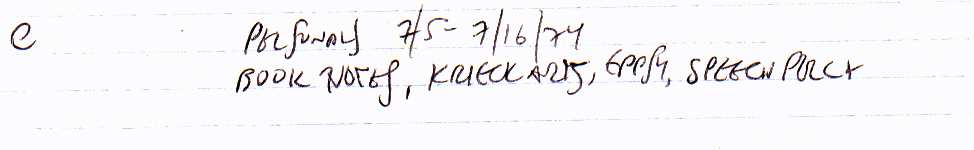 C PERSONALS 7/5 - 7/16/74
BOOK NOTES, KRIECK ARTS, EPPSY, SPEECH